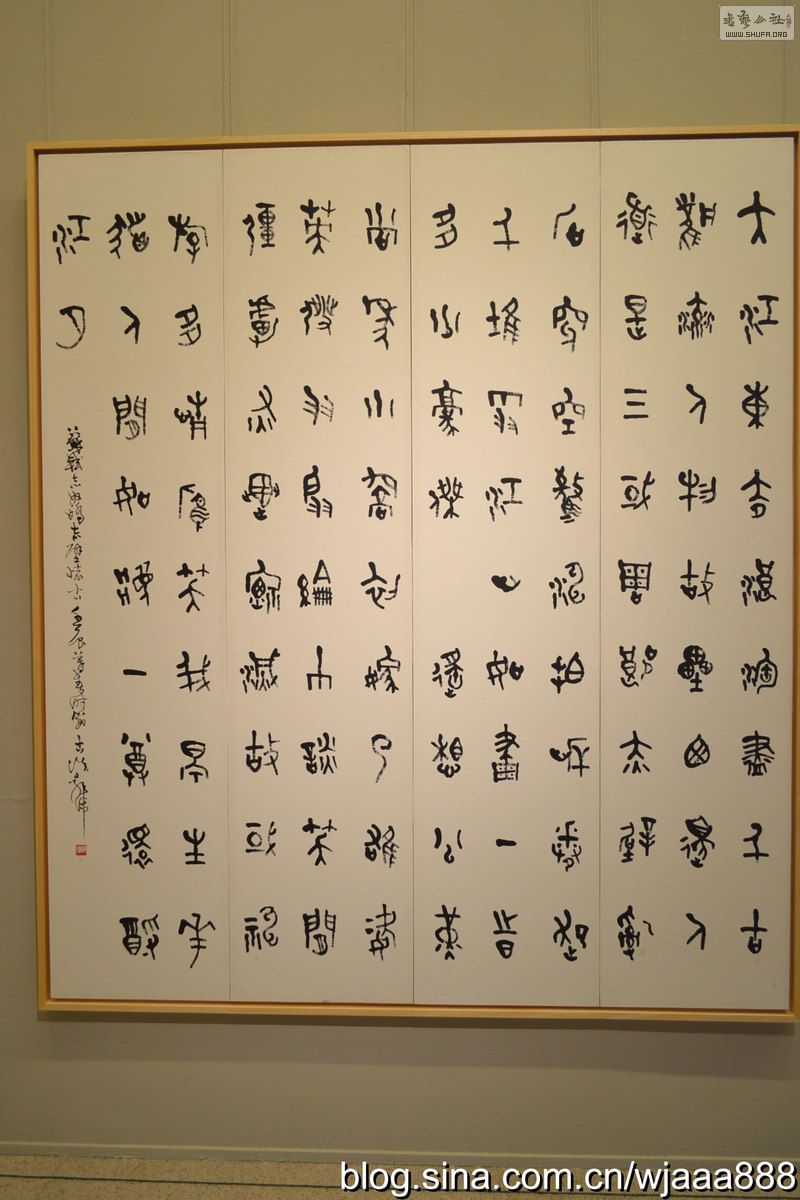 大江東去浪淘盡千古
風流人物故壘西邊人
道是三國周郎赤壁亂
石穿空驚濤拍岸卷起
千堆雪江山如畫一時
多少豪傑 遙想公瑾
當年小喬初嫁了雄姿
英發羽扇綸巾談笑間
彊虜灰飛煙滅故國神
游多情應笑我早生華
髮人間如夢一尊還酹
江月
蘇軾念奴嬌赤壁懷古 壬辰
書法公社
WWW.SHUFA.ORG
blog.sina.com.cn/wjaaa888